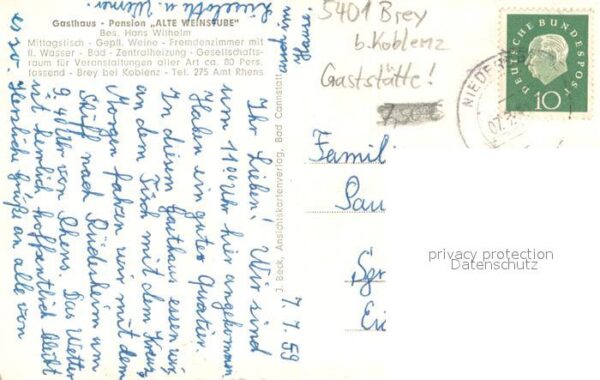 Gasthaus - Pension „ALTE WEINSTUBE"
Bes. Hans Wilhelm
Mittagstisch - Gepfl. Weine - Fremdenzimmer mit
fl. Wasser - Bad - Zentralheizung - Gesellschafts-
raum für Veranstaltungen aller Art ca. 80 Pers.
fassend - Brey bei Koblenz - Tel. 275 Amt Rhens
5401 Brey
b. Koblenz
Gaststätte!
DEUTSCHE BUNDESPOST
10
NIEDER
J. Beck, Ansichtskartenverlag, Bad Cannstatt
7.7.59
Ihr Lieben! Wir sind
um 11 00 Uhr hier angekommen
Haben ein gutes Quartier.
In diesem Gasthaus essen wir,
an dem Tisch mit dem Kreuz
Morgen fahren wir mit dem
Schiff nach Rüdesheim um
9 40 Uhr von Rhens. Das Wetter
ist herrlich hoffentlich bleibt
es so. Herzliche Grüße an alle von
Famil
Sau
privacy protection
Datenschutz